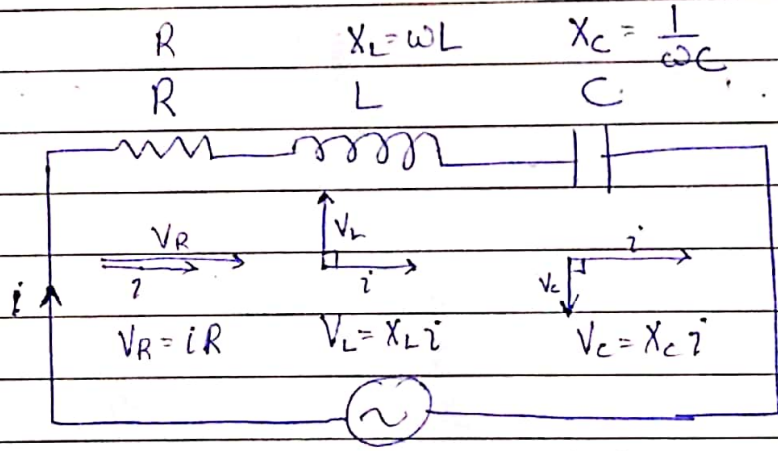 R X_L = ωL X_C = 1/ωC
R L C
V_R V_L
i i V_C i
i
V_R = iR V_L = X_L i V_C = X_C i
~